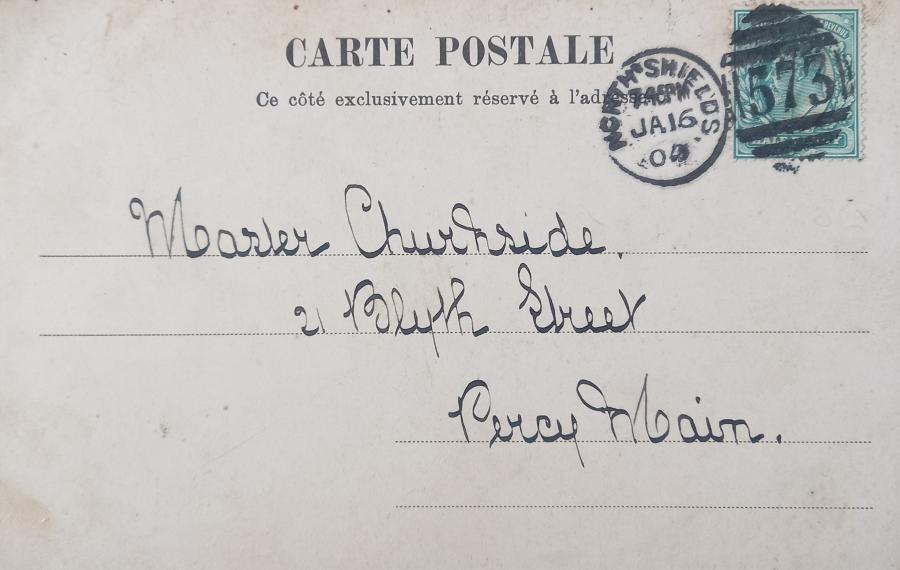 CARTE POSTALE
Ce côté exclusivement réservé à l'adresse
NORTH SHIELDS.
7.45PM
JA 16
04
573
REVENUE
Master Churnside.
21 Blyth Street
Percy Main.